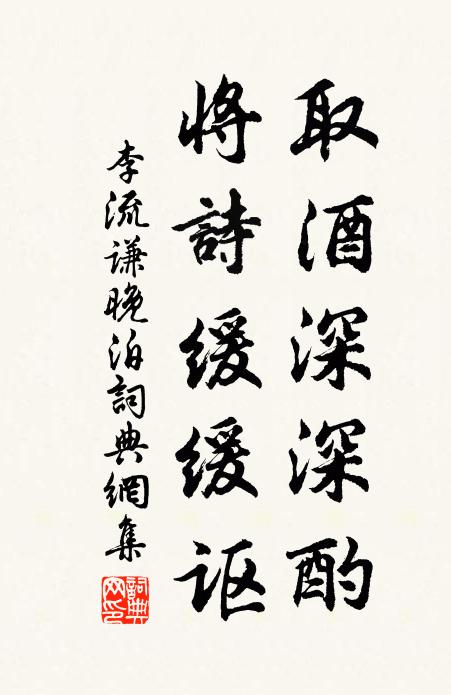 取酒深深酌
將詩緩緩讴
李流谦晚泊詞典網集
詞典网印